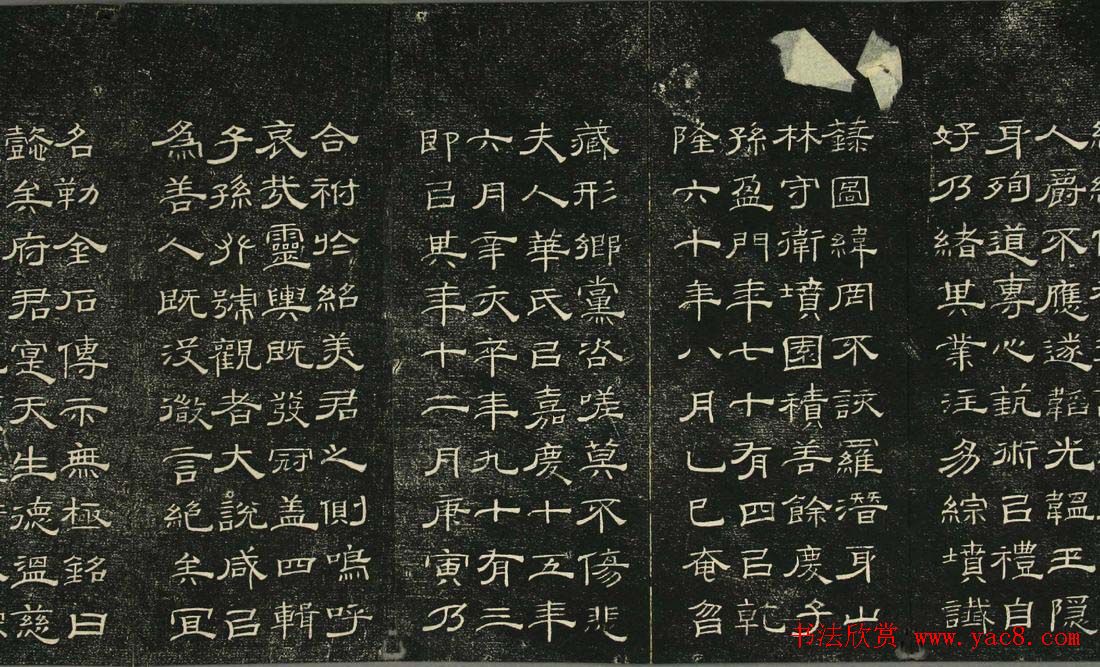 人爵不應遂韜光韞玉隱
身殉道專心執術㠯禮自
好乃緒其業注易綜墳讖
圖緯罔不該羅潛身山
林守衛墳園積善餘慶子
孫盈門年七十有四㠯乾
隆六十年八月己巳奄曶
藏形鄉黨咨嗟莫不傷悲
夫人華氏㠯嘉慶十五年
六月辛亥卒年九十有三
即㠯其年十二月庚寅乃
合祔於紹美君之側嗚呼
哀哉靈輿既發冠蓋四輯
子孫號觀者大說咸㠯
為善人既沒微言絕矣宜
名勒金石傳示無極銘曰
懿矣府君寔天生德溫慈
书法欣赏 www.yac8.com